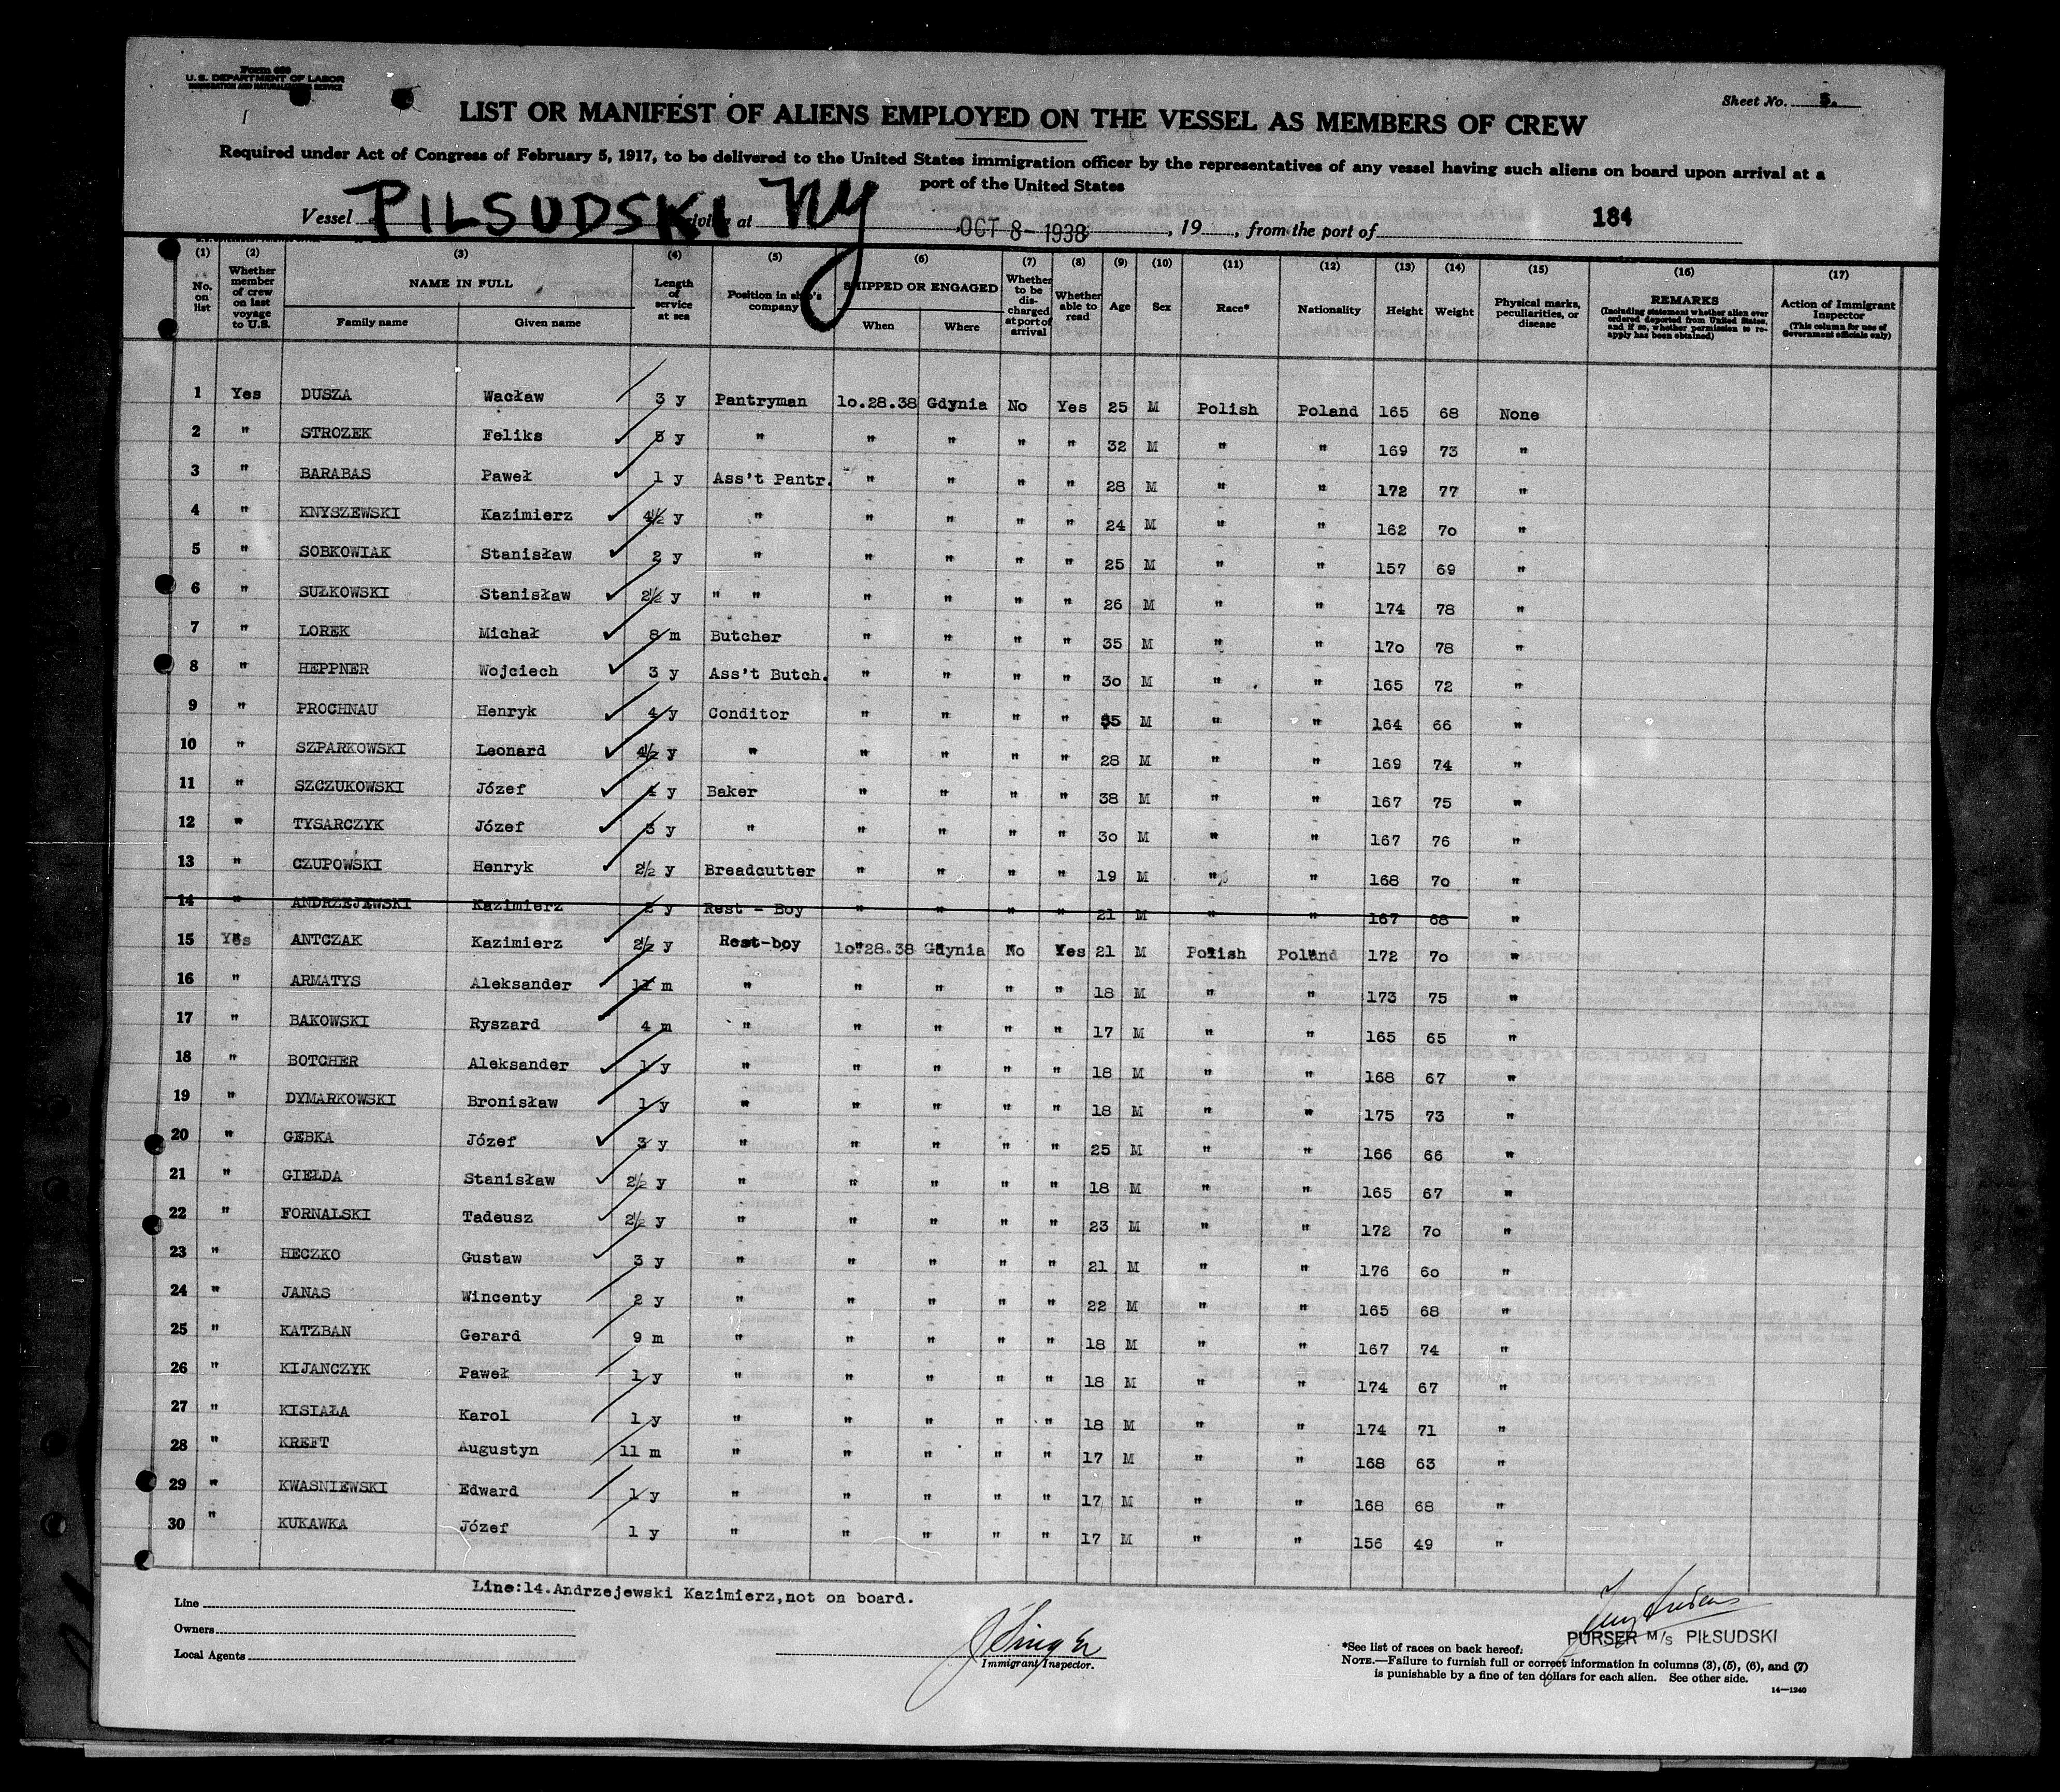 Form 680
U.S. DEPARTMENT OF LABOR
IMMIGRATION AND NATURALIZATION SERVICE
Sheet No. 5.
LIST OR MANIFEST OF ALIENS EMPLOYED ON THE VESSEL AS MEMBERS OF CREW
Required under Act of Congress of February 5, 1917, to be delivered to the United States immigration officer by the representatives of any vessel having such aliens on board upon arrival at a
port of the United States
Vessel PILSUDSKI at NY OCT 8 - 1938, 19, from the port of 184
(1) (2) (3) (4) (5) (6) (7) (8) (9) (10) (11) (12) (13) (14) (15) (16) (17)
No. on list Whether member of crew on last voyage to U.S. NAME IN FULL Family name Given name Length of service at sea Position in ship's company SHIPPED OR ENGAGED When Where Whether to be discharged at port of arrival Whether able to read Age Sex Race* Nationality Height Weight Physical marks, peculiarities, or disease REMARKS (Including statement whether alien ever ordered deported from United States, and if so, whether permission to reapply has been obtained) Action of Immigrant Inspector (This column for use of Government officials only)
1 Yes DUSZA Wacław 3 y Pantryman 10.28.38 Gdynia No Yes 25 M Polish Poland 165 68 None
2 " STROZEK Feliks 5 y " " " " " 32 M " " 169 73 "
3 " BARABAS Paweł 1 y Ass't Pantr. " " " " 28 M " " 172 77 "
4 " KNYSZEWSKI Kazimierz 4½ y " " " " " 24 M " " 162 70 "
5 " SOBKOWIAK Stanisław 2 y " " " " " 25 M " " 157 69 "
6 " SUŁKOWSKI Stanisław 2½ y " " " " " " 26 M " " 174 78 "
7 " LOREK Michał 8 m Butcher " " " " 35 M " " 170 78 "
8 " HEPPNER Wojciech 3 y Ass't Butch. " " " " 30 M " " 165 72 "
9 " PROCHNAU Henryk 4 y Conditor " " " " 35 M " " 164 66 "
10 " SZPARKOWSKI Leonard 4½ y " " " " " 28 M " " 169 74 "
11 " SZCZUKOWSKI Józef 4 y Baker " " " " 38 M " " 167 75 "
12 " TYSARCZYK Józef 3 y " " " " " 30 M " " 167 76 "
13 " CZUPOWSKI Henryk 2½ y Breadcutter " " " " 19 M " " 168 70 "
14 " ANDRZEJEWSKI Kazimierz 2 y Rest - Boy " " " " 21 M " " 167 68 "
15 Yes ANTCZAK Kazimierz 2½ y Rest-boy 10.28.38 Gdynia No Yes 21 M Polish Poland 172 70 "
16 " ARMATYS Aleksander 11 m " " " " " 18 M " " 173 75 "
17 " BAKOWSKI Ryszard 4 m " " " " " 17 M " " 165 65 "
18 " BOTCHER Aleksander 1 y " " " " " 18 M " " 168 67 "
19 " DYMARKOWSKI Bronisław 1 y " " " " " 18 M " " 175 73 "
20 " GEBKA Józef 3 y " " " " " 25 M " " 166 66 "
21 " GIEŁDA Stanisław 2½ y " " " " " 18 M " " 165 67 "
22 " FORNALSKI Tadeusz 2½ y " " " " " 23 M " " 172 70 "
23 " HECZKO Gustaw 3 y " " " " " 21 M " " 176 60 "
24 " JANAS Wincenty 2 y " " " " " 22 M " " 165 68 "
25 " KATZBAN Gerard 9 m " " " " " 18 M " " 167 74 "
26 " KIJANCZYK Paweł 1 y " " " " " 18 M " " 174 67 "
27 " KISIAŁA Karol 1 y " " " " " 18 M " " 174 71 "
28 " KREFT Augustyn 11 m " " " " " 17 M " " 168 63 "
29 " KWASNIEWSKI Edward 1 y " " " " " 17 M " " 168 68 "
30 " KUKAWKA Józef 1 y " " " " " 17 M " " 156 49 "
Line:14.Andrzejewski Kazimierz,not on board.
Line
Owners
Local Agents
J Singer
Immigrant Inspector.
PURSER M/S PIŁSUDSKI
*See list of races on back hereof.
NOTE.—Failure to furnish full or correct information in columns (3), (5), (6), and (7)
is punishable by a fine of ten dollars for each alien. See other side.
14—1240